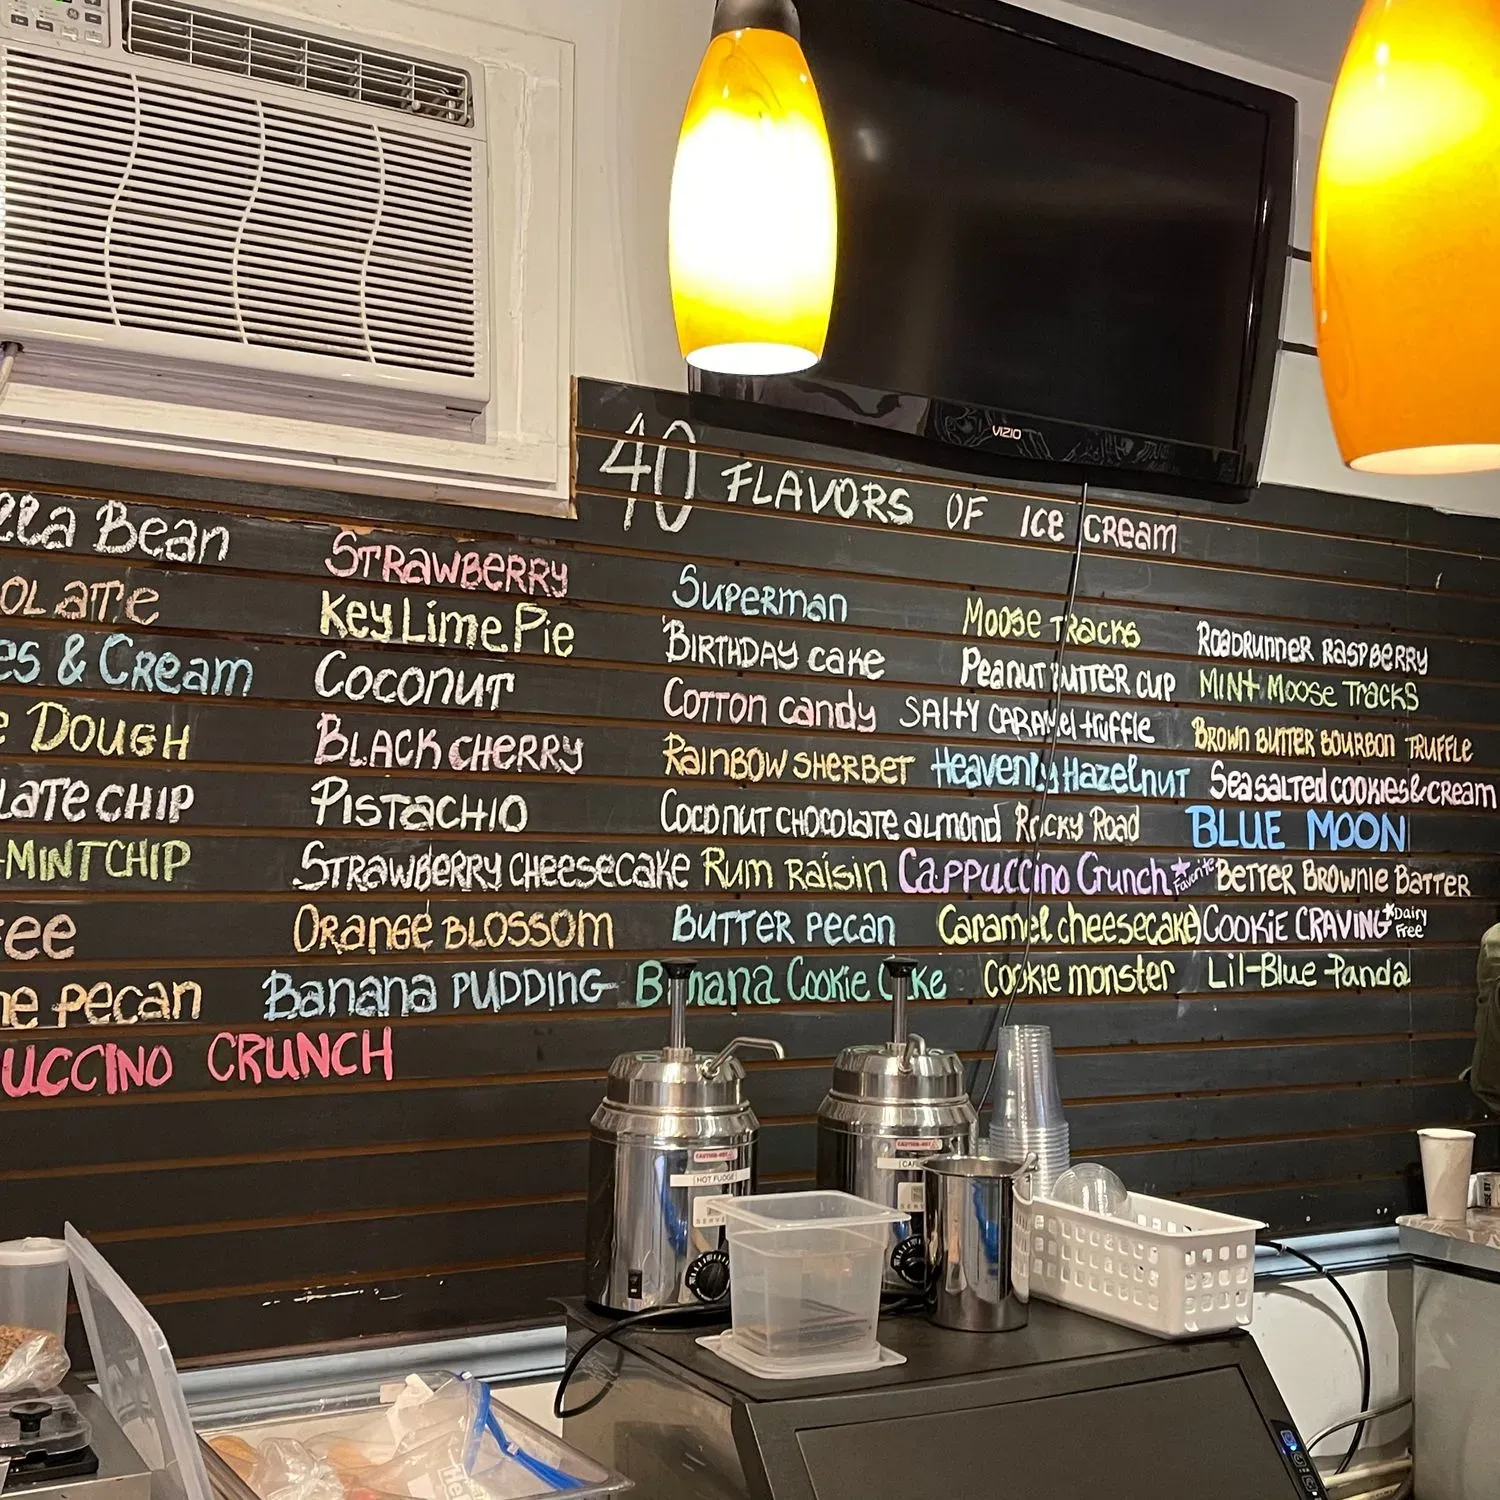 VIZIO
40 FLAVORS OF ICE CREAM
Bean
& CREAM
DOUGH
CHIP
MINT CHIP
PECAN
CRUNCH
STRAWBERRY
Key Lime Pie
COCONUT
BLACK CHERRY
PISTACHIO
STRAWBERRY CHEESECAKE
ORANGE BLOSSOM
Banana PUDDING
SUPERMAN
BIRTHDAY CAKE
COTTON CANDY
RAINBOW SHERBET
COCONUT CHOCOLATE ALMOND
RUM RAISIN
BUTTER PECAN
Banana Cookie Cake
MOOSE TRACKS
PEANUT BUTTER CUP
SALTY CARAMEL TRUFFLE
Heavenly Hazelnut
Rocky Road
CAPPUCCINO Crunch *Favorite
Caramel cheesecake
Cookie monster
ROADRUNNER RASPBERRY
MINT MOOSE TRACKS
BROWN BUTTER BOURBON TRUFFLE
Sea salted cookies & cream
BLUE MOON
BETTER BROWNIE BATTER
COOKIE CRAVING *Dairy Free
Lil-Blue Panda
CAUTION-HOT
HOT FUDGE
CAUTION-HOT